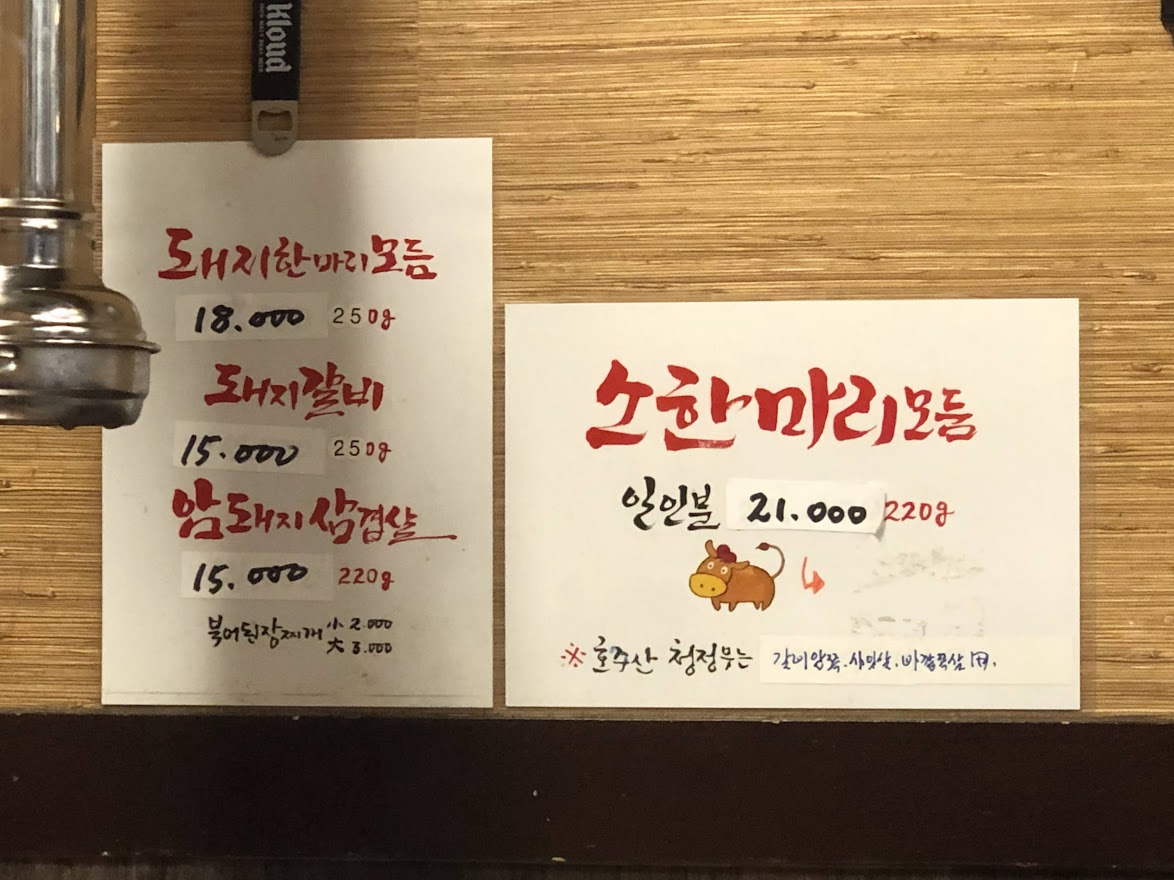 Kloud
돼지한마리모듬
18.000 250g
돼지갈비
15.000 250g
암돼지삼겹살
15.000 220g
북어된장찌개 小 2.000
大 3.000
소한마리모듬
일인분 21.000 220g
※ 호주산 청정우는